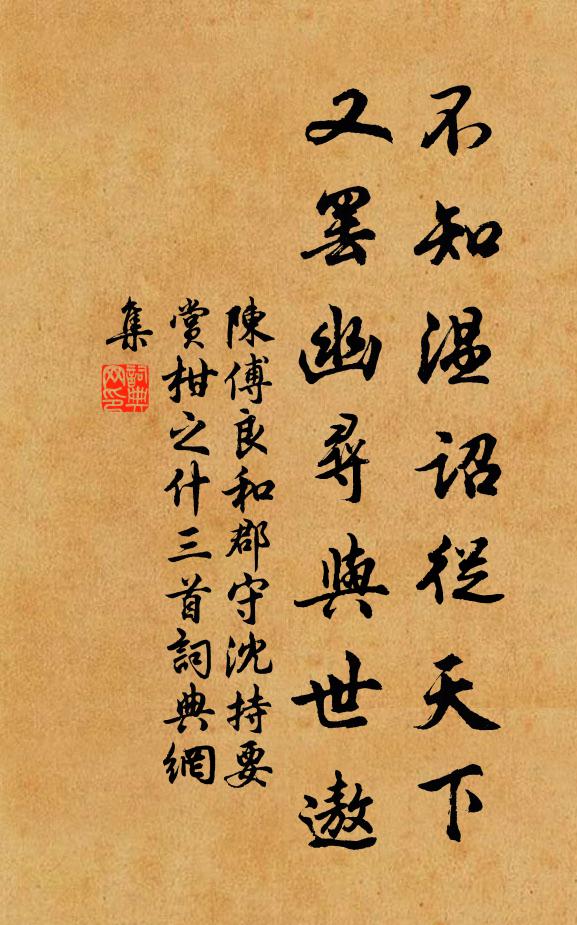 不知温诏從天下
又罢幽尋與世遨
陳傅良和郡守沈持要
賞柑之什三首詞典網
集
詞典
网印